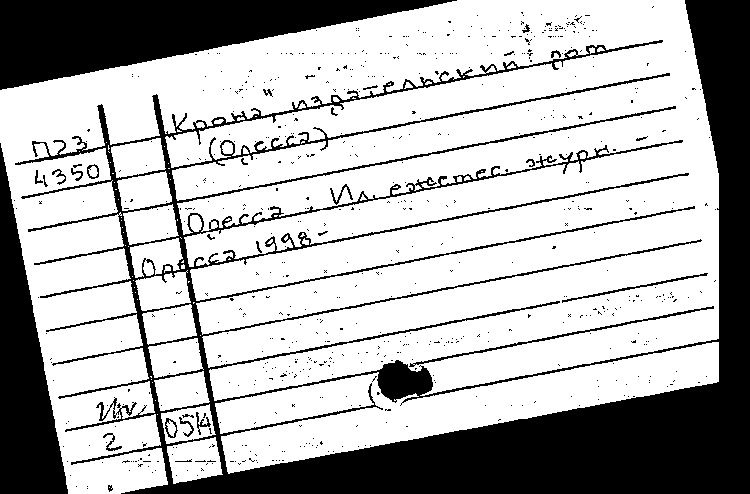 П23
4350
„Крона", издательский дом
(Одесса)
Одесса : Ил. ежемес. журн. –
Одесса, 1998 –
2
051Ч